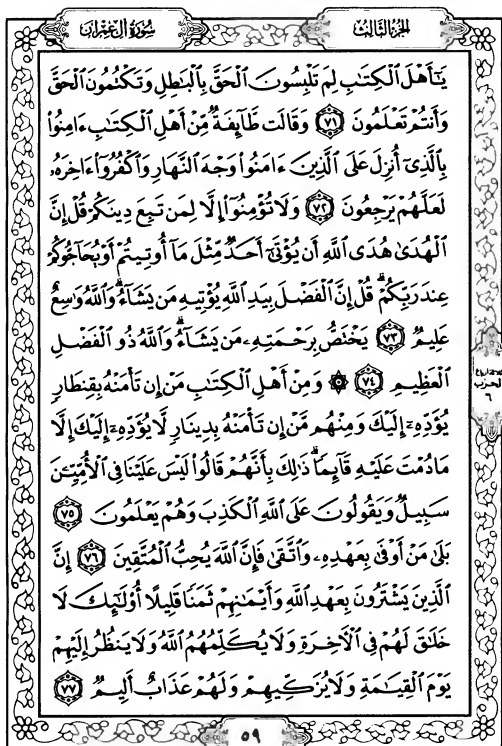 سُورَةُ آلِ عِمْرَانَ
الجُزْءُ الثَّالِثُ
يَٰٓأَهْلَ ٱلْكِتَٰبِ لِمَ تَلْبِسُونَ ٱلْحَقَّ بِٱلْبَٰطِلِ وَتَكْتُمُونَ ٱلْحَقَّ
وَأَنتُمْ تَعْلَمُونَ ٧١ وَقَالَت طَّآئِفَةٌ مِّنْ أَهْلِ ٱلْكِتَٰبِ ءَامِنُوا۟
بِٱلَّذِىٓ أُنزِلَ عَلَى ٱلَّذِينَ ءَامَنُوا۟ وَجْهَ ٱلنَّهَارِ وَٱكْفُرُوٓا۟ ءَاخِرَهُۥ
لَعَلَّهُمْ يَرْجِعُونَ ٧٢ وَلَا تُؤْمِنُوٓا۟ إِلَّا لِمَن تَبِعَ دِينَكُمْ قُلْ إِنَّ
ٱلْهُدَىٰ هُدَى ٱللَّهِ أَن يُؤْتَىٰٓ أَحَدٌ مِّثْلَ مَآ أُوتِيتُمْ أَوْ يُحَآجُّوكُمْ
عِندَ رَبِّكُمْ ۗ قُلْ إِنَّ ٱلْفَضْلَ بِيَدِ ٱللَّهِ يُؤْتِيهِ مَن يَشَآءُ ۗ وَٱللَّهُ وَٰسِعٌ
عَلِيمٌ ٧٣ يَخْتَصُّ بِرَحْمَتِهِۦ مَن يَشَآءُ ۗ وَٱللَّهُ ذُو ٱلْفَضْلِ
ٱلْعَظِيمِ ٧٤ ۞ وَمِنْ أَهْلِ ٱلْكِتَٰبِ مَنْ إِن تَأْمَنْهُ بِقِنطَارٍ
يُؤَدِّهِۦٓ إِلَيْكَ وَمِنْهُم مَّنْ إِن تَأْمَنْهُ بِدِينَارٍ لَّا يُؤَدِّهِۦٓ إِلَيْكَ إِلَّا
مَا دُمْتَ عَلَيْهِ قَآئِمًا ۗ ذَٰلِكَ بِأَنَّهُمْ قَالُوا۟ لَيْسَ عَلَيْنَا فِى ٱلْأُمِّيِّـۧنَ
سَبِيلٌ وَيَقُولُونَ عَلَى ٱللَّهِ ٱلْكَذِبَ وَهُمْ يَعْلَمُونَ ٧٥
بَلَىٰ مَنْ أَوْفَىٰ بِعَهْدِهِۦ وَٱتَّقَىٰ فَإِنَّ ٱللَّهَ يُحِبُّ ٱلْمُتَّقِينَ ٧٦ إِنَّ
ٱلَّذِينَ يَشْتَرُونَ بِعَهْدِ ٱللَّهِ وَأَيْمَٰنِهِمْ ثَمَنًا قَلِيلًا أُو۟لَٰٓئِكَ لَا
خَلَٰقَ لَهُمْ فِى ٱلْءَاخِرَةِ وَلَا يُكَلِّمُهُمُ ٱللَّهُ وَلَا يَنظُرُ إِلَيْهِمْ
يَوْمَ ٱلْقِيَٰمَةِ وَلَا يُزَكِّيهِمْ وَلَهُمْ عَذَابٌ أَلِيمٌ ٧٧
الحزب
٦
٥٩